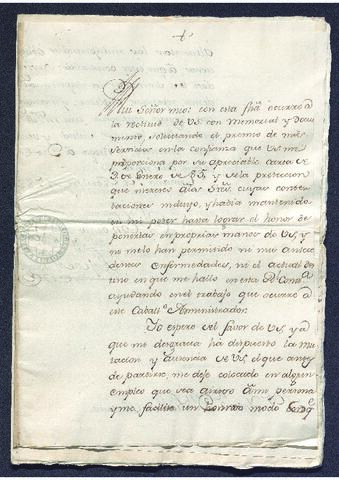 Muí Señor mio: con esta fhã ocurro à
la rectitud de VS con Memorial y docu
mento, solicitando el premio de mis
servicios en la confianza que VS me
proporciona por su apreciable carta de
3 de Enero de 85, y de la proteccion
que merecio
contes
taciones incluyo, y havia mantenido
en mi poder hasta lograr el honor de
ponerlas en proprias manos de VS, y
no melo han permitido ni mis antece
dentes enfermedades, ni el actual des
tino en que me hallo en esta
ayudando en el trabajo que ocurre à
este Caballº Administrador.
Yo espero del favor de VS, ya
que mi desgracia ha dispuesto la mu
tacion y ausencia de VS, el que antes
de partirse, me deje colocado en algun
empleo que sea arreglado à mi persona
y me facilite un honrado modo